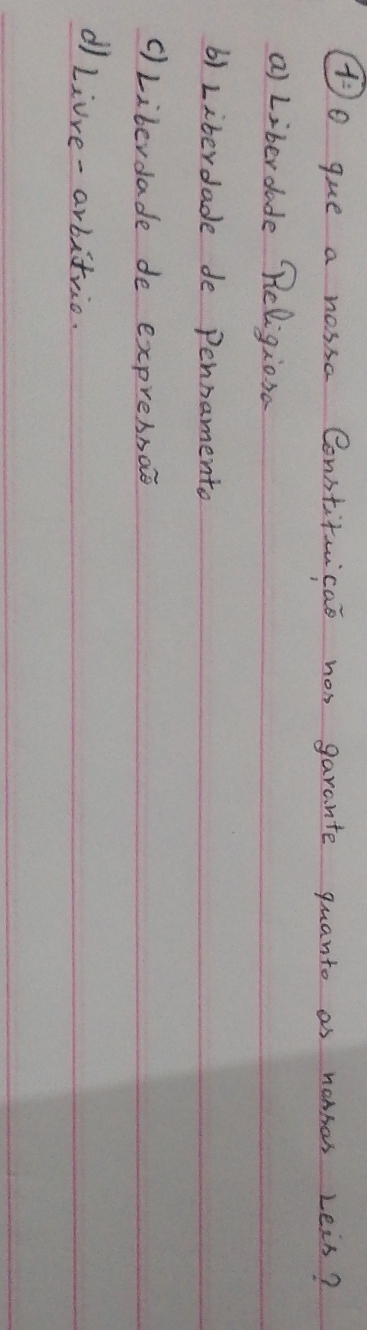 1ª) O que a nossa Constituição nos garante quanto as nossas Leis?
a) Liberdade Religiosa
b) Liberdade de Pensamento
c) Liberdade de expressão
d) Livre-arbítrio.